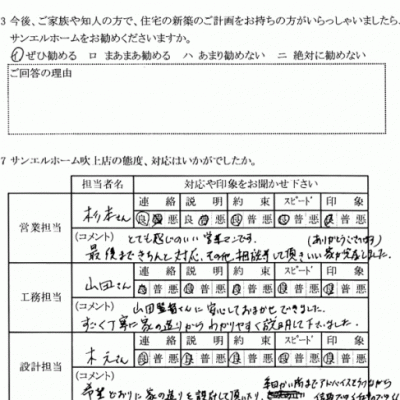 3 今後、ご家族や知人の方で、住宅の新築のご計画をお持ちの方がいらっしゃいましたら、
サンエルホームをお勧めくださいますか。
イ ぜひ勧める ロ まあまあ勧める ハ あまり勧めない ニ 絶対に勧めない
ご回答の理由
7 サンエルホーム吹上店の態度、対応はいかがでしたか。
担当者名 対応や印象をお聞かせ下さい
営業担当 杉本さん 連絡 説明 約束 スピード 印象
良 普 悪 良 普 悪 良 普 悪 良 普 悪 良 普 悪
(コメント) とても感じのいい営業マンです。(ありがとうございます)
最後まできちんと対応、その他相談もして頂きいい家が完成しました。
工務担当 山田さん 連絡 説明 約束 スピード 印象
良 普 悪 良 普 悪 良 普 悪 良 普 悪 良 普 悪
(コメント) 山田監督さんに安心しておまかせできました。
すごく丁寧に家の造りからわかりやすく説明して下さいました。
設計担当 連絡 説明 約束 スピード 印象
良 普 悪 良 普 悪 良 普 悪 良 普 悪 良 普 悪
(コメント) 細かい所までアドバイスをどうりながら
希望どおりに家の造りを設計して頂いたり、